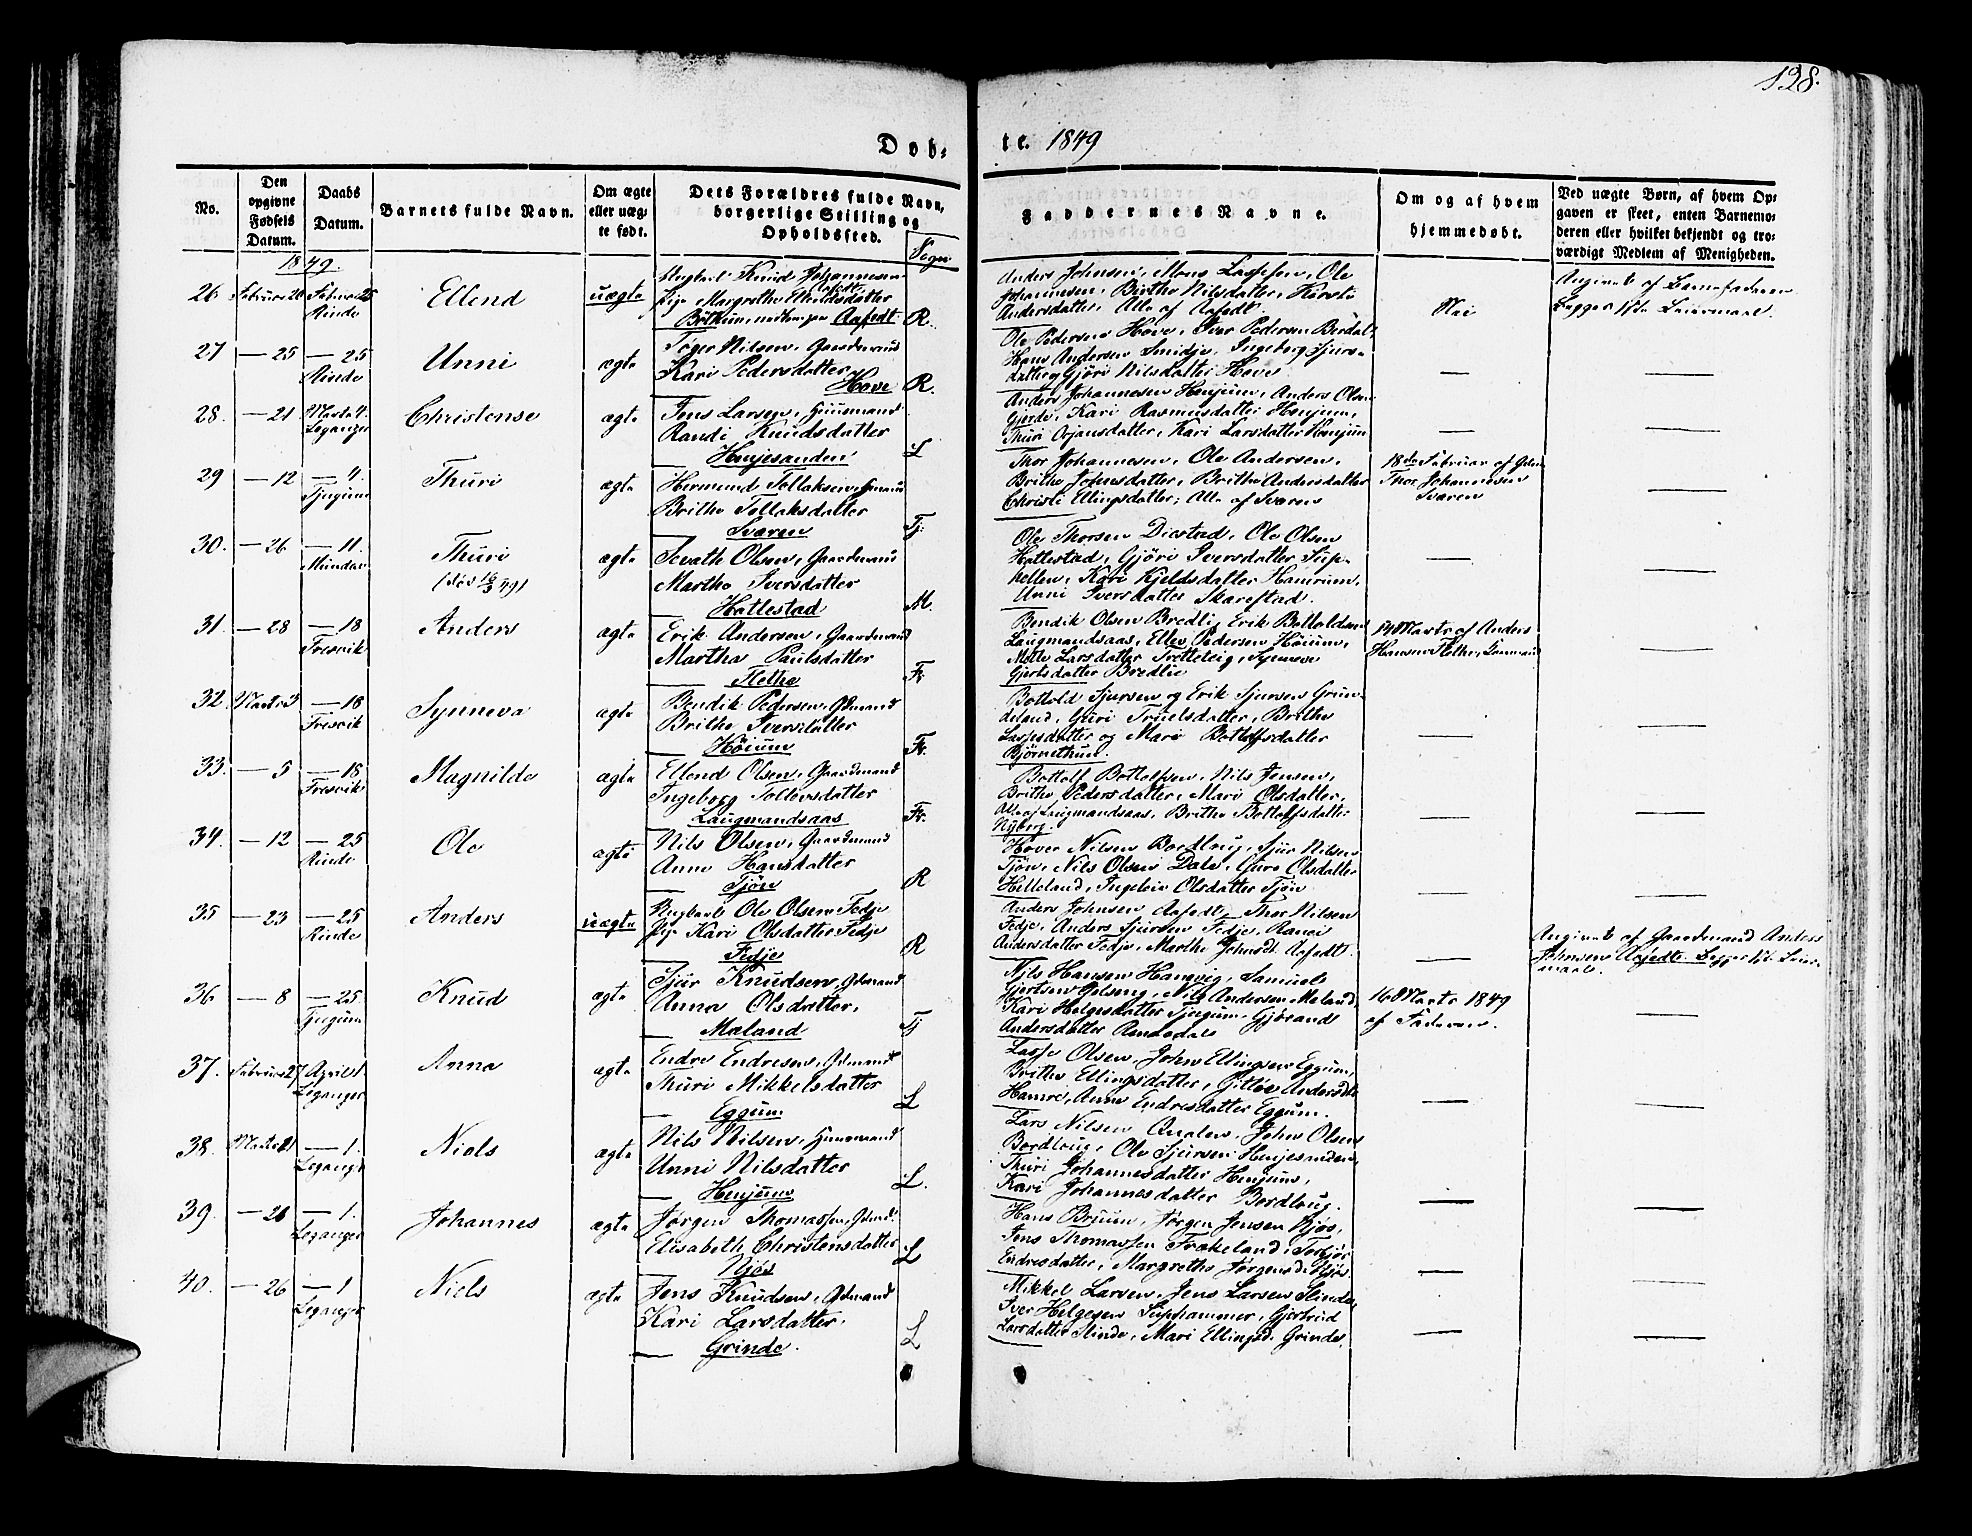 128.
Døb-
te. 1849
No.
Den opgivne Fødsels Datum.
Daabs Datum.
Barnets fulde Navn.
Om ægte eller uægte født.
Dets Forældres fulde Navn, borgerlige Stilling og Opholdssted.
Sogn
Faddernes Navne.
Om og af hvem hjemmedøbt.
Ved uægte Børn, af hvem Opgaven er skeet, enten Barnemoderen eller hvilket bekjendt og troværdigt Medlem af Menigheden.
1849.
26 Februar 20 Februar 25 Rinde
Ellend
uægte
Ungkarl Knud Johannesen Aafedt
Pige Margrethe
Böthun, Aafedt R.
Anders Johnsen, Mons Lassesen, Ole
Johannesen, Birthe Nilsdatter, Kirsti
Andersdatter, Alle af Aafedt.
Nei
Angivet af Barnefaderen
Begges 1ste Leiermaal.
27 — 25 — 25 Rinde
Unni
ægte
Tøger Nilsen, Gaardmand
Kari Pedersdatter
Hove R.
Ole Pedersen Hove, Iver Pedersen Berdal,
Hans Andersen Smidje, Ingeborg Sjurs-
datter og Gjöri Nilsdatter Hove
— —
28. — 21 Marts 4. Leganger
Christense
ægte
Jens Larsen, Huusmand
Randi Knudsdatter
Henjesanden L
Anders Johannesen Henjum, Anders Olsen
Gjerde, Kari Rasmusdatter Henjum,
Thuri Orjansdatter, Kari Larsdatter Henjum
— —
29 — 12 — 4. Tjugum
Thuri
ægte
Hermund Tollaksen, Gmand
Brithe Tollaksdatter
Sværen Tj.
Thor Johannesen, Ole Andersen,
Brithe Johnsdatter, Brithe Andersdatter
Christi Ellingsdatter; Alle af Sværen
18de Februar af Gdm.
Thor Johannesen
Sværen
—
30. — 26 — 11. Mundal
Thuri
(død 16/3 49)
ægte
Sevath Olsen, Gaardmand
Martha Iversdatter
Hatlestad M.
Ole Thorsen Dicstad, Ole Olsen
Hatlestad, Gjöri Iversdatter Sup-
hellen, Kari Kjeldsdatter Hamrum,
Unni Iversdatter Skarestad.
— —
31. — 28 — 18 Fresvik
Anders
ægte
Erik Andersen, Gaardmand
Martha Paulsdatter
Flethe Fr
Bendik Olsen Bredli, Erik Botholdsen
Laugmandsaas, Ellev Pedersen Höium,
Mette Larsdatter Tretteteig, Synneve
Gjertsdatter Bredlie
14 Marts af Anders
Hansen Flethe, Gaardmand
—
32. Marts 3 — 18 Fresvik
Synneva
ægte
Bendik Pedersen, Gdmand
Brithe Iversdatter
Höium Fr.
Bottold Sjursen og Erik Sjursen Grim-
deland, Guri Truelsdatter, Brithe
Lassesdatter og Mari Bottolfsdatter
Björnethun.
— —
33. — 5 — 18 Fresvik
Magnilde
ægte
Ellend Olsen, Gaardmand
Ingeborg Tollevsdatter
Laugmandsaas Fr.
Bottolf Bottolfsen, Nils Jensen,
Brithe Pedersdatter, Mari Olsdatter,
Alle af Laugmandsaas, Brithe Bottolfsdatter
Nyborg.
— —
34. — 12 — 25 Rinde
Ole
ægte
Nils Olsen, Gaardmand
Anne Hansdatter
Tjön R
Hover Nilsen Bordlaug, Sjur Nilsen
Tjön, Nils Olsen Dale, Guro Olsdatter
Helleland, Ingeleiv Olsdatter Tjön
— —
35 — 23 — 25 Rinde
Anders
uægte
Ungkarl Ole Olsen Fedje
Pige Kari Olsdatter Fedje
Fedje R
Anders Johnsen Aafedt, Thor Nilsen
Fedje, Anders Sjursen Fedje, Ranei
Andersdatter Fedje, Marthe Johnsdt. Aafedt.
—
Angivet af Gaardmand Anders
Johnsen Aafedt. Begges 1ste Leier-
maal.
36 — 8 — 25. Tjugum
Knud
ægte
Sjur Knudsen, Gdmand
Anna Olsdatter,
Meland Tj
Nils Hansen Hangvig, Samuel
Gjertsen, Nils Andersen Meland,
Kari Helgesdatter Tjugum, Gjörand
Andersdatter
16 Marts 1849
af Faderen.
—
37. Februar 27 April 1 Leganger
Anna
ægte
Endre Endresen, Gdmand
Thuri Mikkelsdatter
Eggum L
Lasse Olsen, John Ellingsen Eggum,
Brithe Ellingsdatter, Andersdtr
Hamre, Anne Endresdatter Eggum.
— —
38. Marts 21 — 1. Leganger
Niels
ægte
Nils Nilsen, Huusmand
Unni Nilsdatter
Henjum L.
Lars Nilsen, John Olsen
Bordlaug, Ole Sjursen Henjesanden,
Thuri Johannesdatter Henjum,
Kari Johannesdatter Bordlaug.
— —
39. — 26 — 1. Leganger
Johannes
ægte
Jørgen Thomassen, Gdmd.
Elisabeth Christensdatter
Njøs L
Hans Bruun, Jørgen Jensen Njøs,
Jens Thomassen Frækeland, Torbjør
Endresdatter, Margrethe Jørgensd. Njøs
— —
40. — 26 — 1 Leganger
Niels
ægte
Jens Knudsen, Gdmand
Kari Larsdatter,
Grinde. L
Mikkel Larsen, Jens Larsen Slinde,
Iver Helgesen Suphammer, Gjertrud
Larsdatter Slinde, Mari Ellingsd. Grinde.
— —